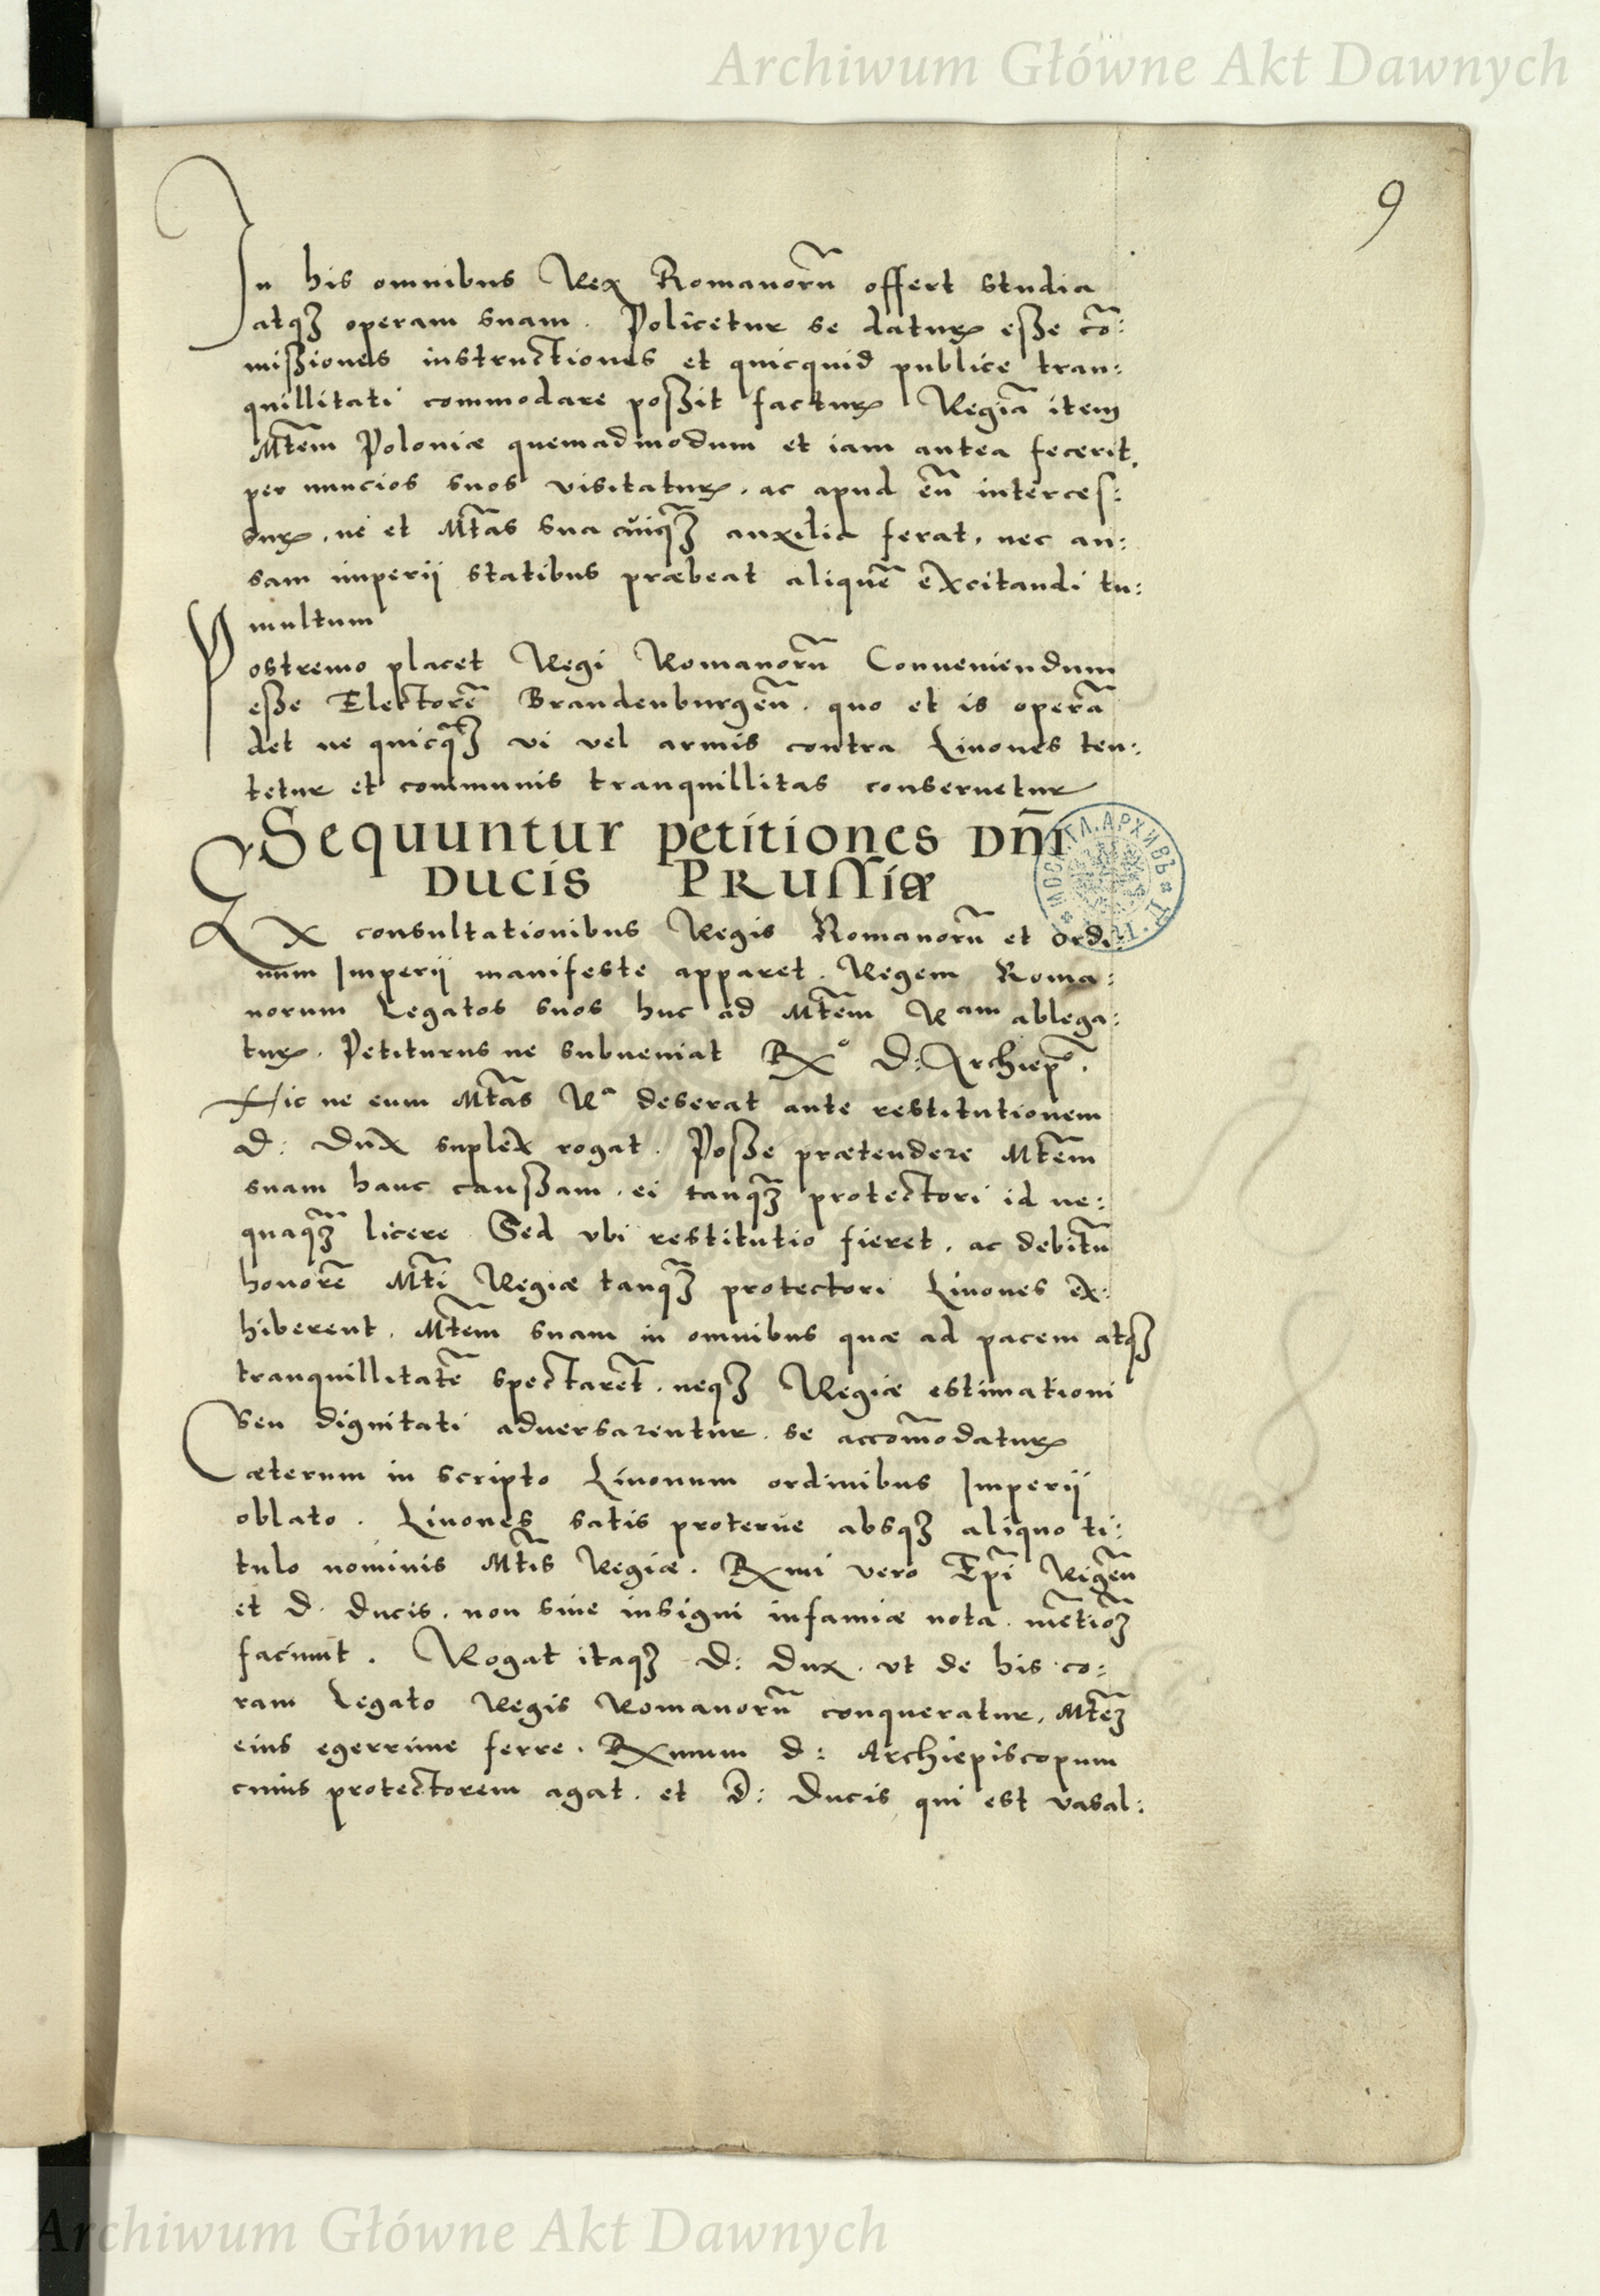 Archiwum Główne Akt Dawnych
9
In his omnibus Rex Romanorũ offert studia
atqꝫ operam suam. Policetur se daturꝝ eße cõ:
mißiones instructiones et quicquid publice tran:
quillitati commodare poßit facturꝝ Regiã item
Mtẽm Poloniæ quemadmodum et iam antea fecerit,
per nuncios suos visitaturꝝ, ac apud eũ interces:
surꝝ, ne et Mtãs sua cuiqꝫ̃ auxilia ferat, nec an:
sam imperij statibus præbeat aliquẽ excitandi tu:
multum
Postremo placet Regi Romanorũ Conueniendum
eße Electorẽ Brandenburgeñ. quo et is operã
det ne quicqꝫ̃ vi vel armis contra Liuones ten:
tetur et communis tranquillitas conseruetur
Sequuntur petitiones Dñi
Ducis Prussiæ
Ex consultationibus Regis Romanorũ et ordi
num Imperij manifeste apparet. Regem Roma:
norum Legatos suos huc ad Mtẽm Ram ablega:
turꝝ. Petiturus ne subueniat Rxo D: Archiepõ.
Hic ne eum Mtãs Ra deserat ante restitutionem
D: Dux suplex rogat. Poße prætendere Mtẽm
suam hanc caußam, ei tanqꝫ̃ protectori id ne:
quaqꝫ̃ licere Sed vbi restitutio fieret, ac debitũ
honorẽ Mtĩ Regiæ tanqꝫ̃ protectori Liuones ex:
hiberent, Mtẽm suam in omnibus quæ ad pacem atqꝫ
tranquillitatẽ spectarẽt, neqꝫ Regiæ estimationi
seu dignitati aduersarentur. se accõmodaturꝝ
Cæterum in scripto Liuonum ordinibus Imperij
oblato. Liuones satis proterue absqꝫ aliquo ti:
tulo nominis Mtĩs Regiæ. Rxmi vero Epĩ Rigeñ
et D. Ducis, non sine insigni infamiæ nota. mẽtioꝫ̃
faciunt. Rogat itaqꝫ D: Dux. vt de his co:
ram Legato Regis Romanorũ conqueratur, Mtẽꝫ
eius egerrime ferre. Rxmum d: Archiepiscopum
cuius protectorem agat. et D: Ducis qui est vasal:
Archiwum Główne Akt Dawnych